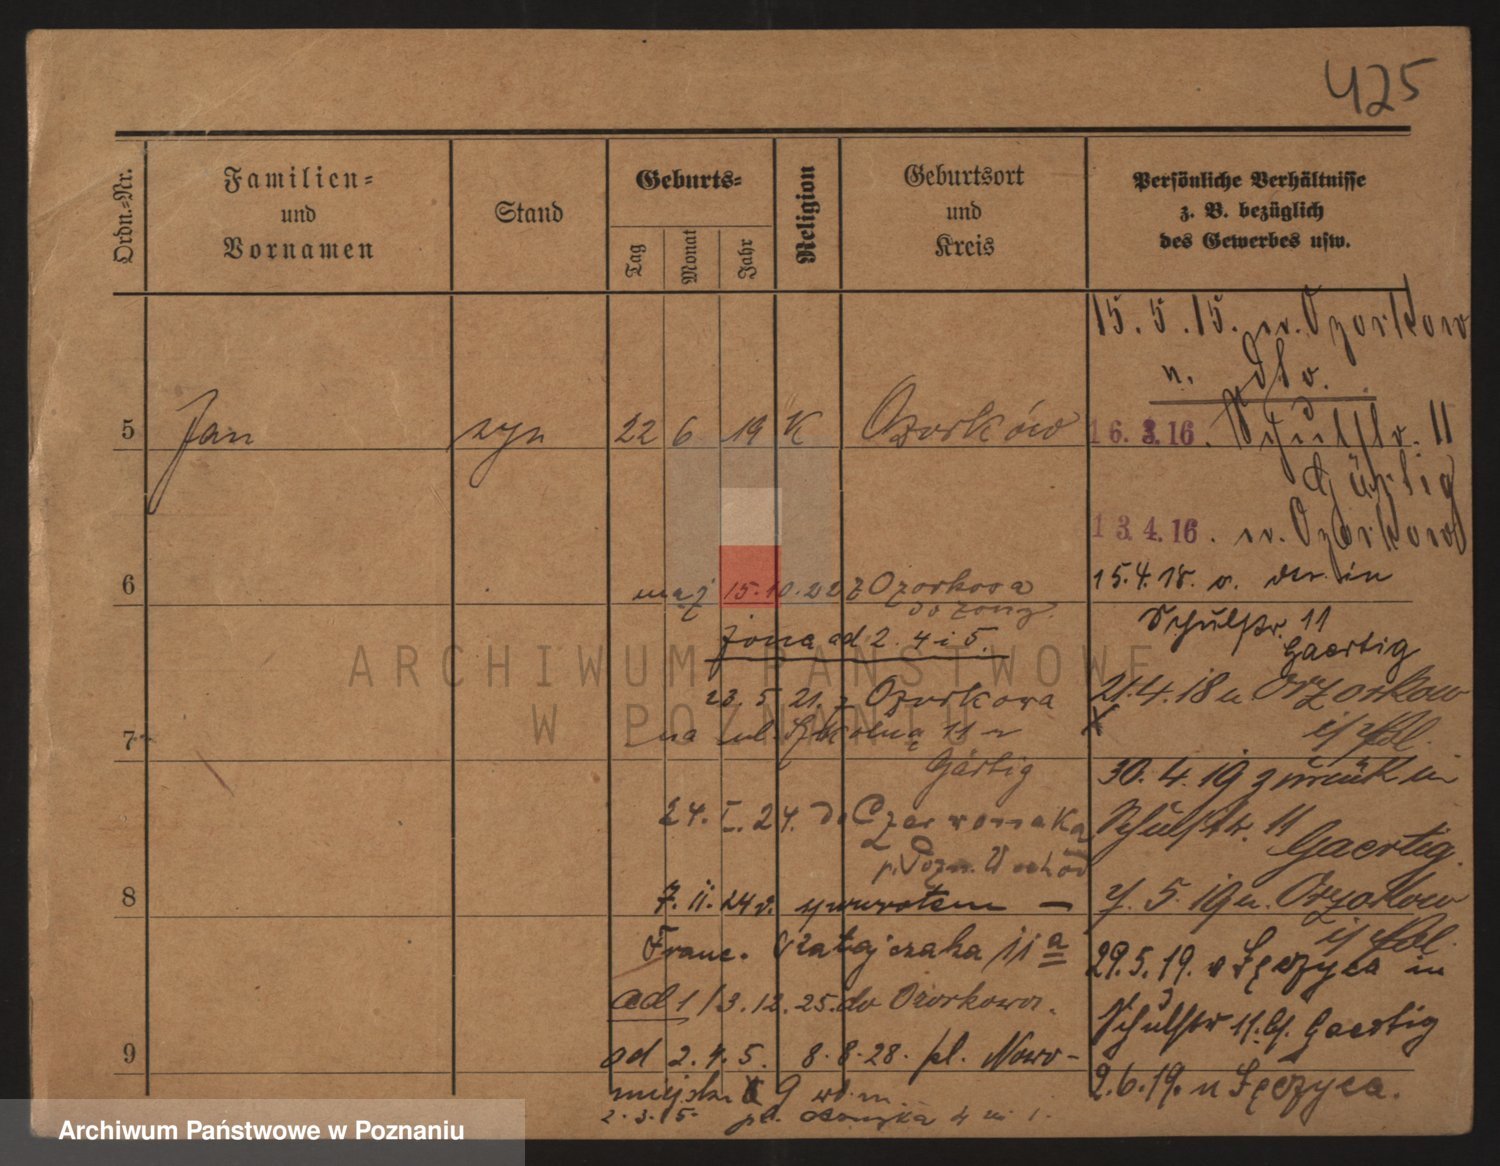 425
Ordn.-Nr.
Familien-
und
Vornamen
Stand
Geburts-
Tag
Monat
Jahr
Religion
Geburtsort
und
Kreis
Persönliche Verhältnisse
z. B. bezüglich
des Gewerbes usw.
5
Jan syn 22 6 19 K Ozorków
6
maj 15.10.22 z Ozorkowa
do żony
żona ad 2. 4 i 5.
23. 5 21. z Ozorkowa
7
na ul. Szkolną 11
Gärtig
24. I. 24. do Czerwonaka
p. Pozn. Wschód
8
7. II. 24 z powrotem —
Franc. Ratajczaka 11 a
ad 1/3.12.25. do Ozorkowa.
9
ad 2. 4. 5. 8.8.28. pl. Nowo-
miejski 9
2. 3. 5.
15.5.15. n. Ozorkow
16.3.16. Schulstr. 11
Gärtig
13.4.16. n. Ozorkow
15.4.18. v. der. in
Schulstr. 11
Gaertig
21.4.18 n Ozorkow
30.4.19 zurück in
Schulstr. 11
Gaertig.
5.19 n. Ozorkow
29.5.19. v Łęczyca in
Schulstr 11. b/. Gaertig
2.6.19. n Łęczyca.
ARCHIWUM PAŃSTWOWE
W POZNANIU
Archiwum Państwowe w Poznaniu